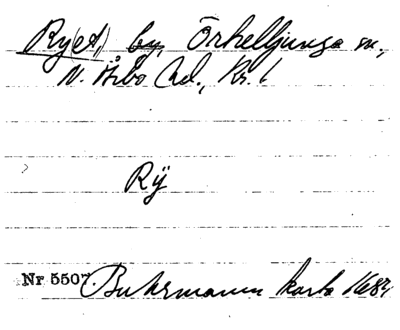 Ry(et) by, Örkelljunga sn,
N. Åsbo hd., Kr. l
Rÿ
Nr 5507. Buhrmanns karta 1684